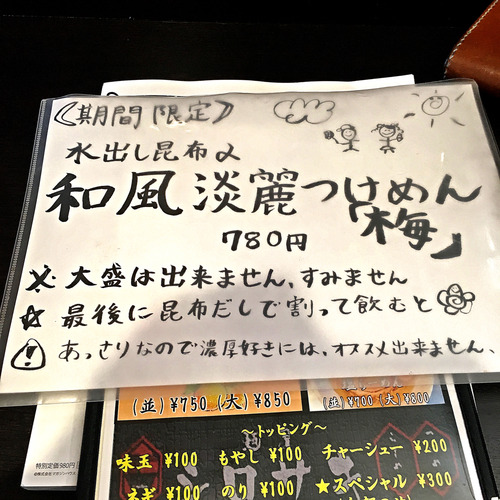 《期間限定》
水出し昆布の
和風淡麗つけめん
「梅」
780円
※大盛は出来ません、すみません
☆最後に昆布だしで割って飲むと
あっさりなので濃厚好きには、オススメ出来ません、
(並)¥750 (大)¥850
(並)¥700 (大)¥800
～トッピング～
味玉 ¥100 もやし ¥100 チャーシュー ¥200
ネギ ¥100 のり ¥100 ★スペシャル ¥300
特別定価980円